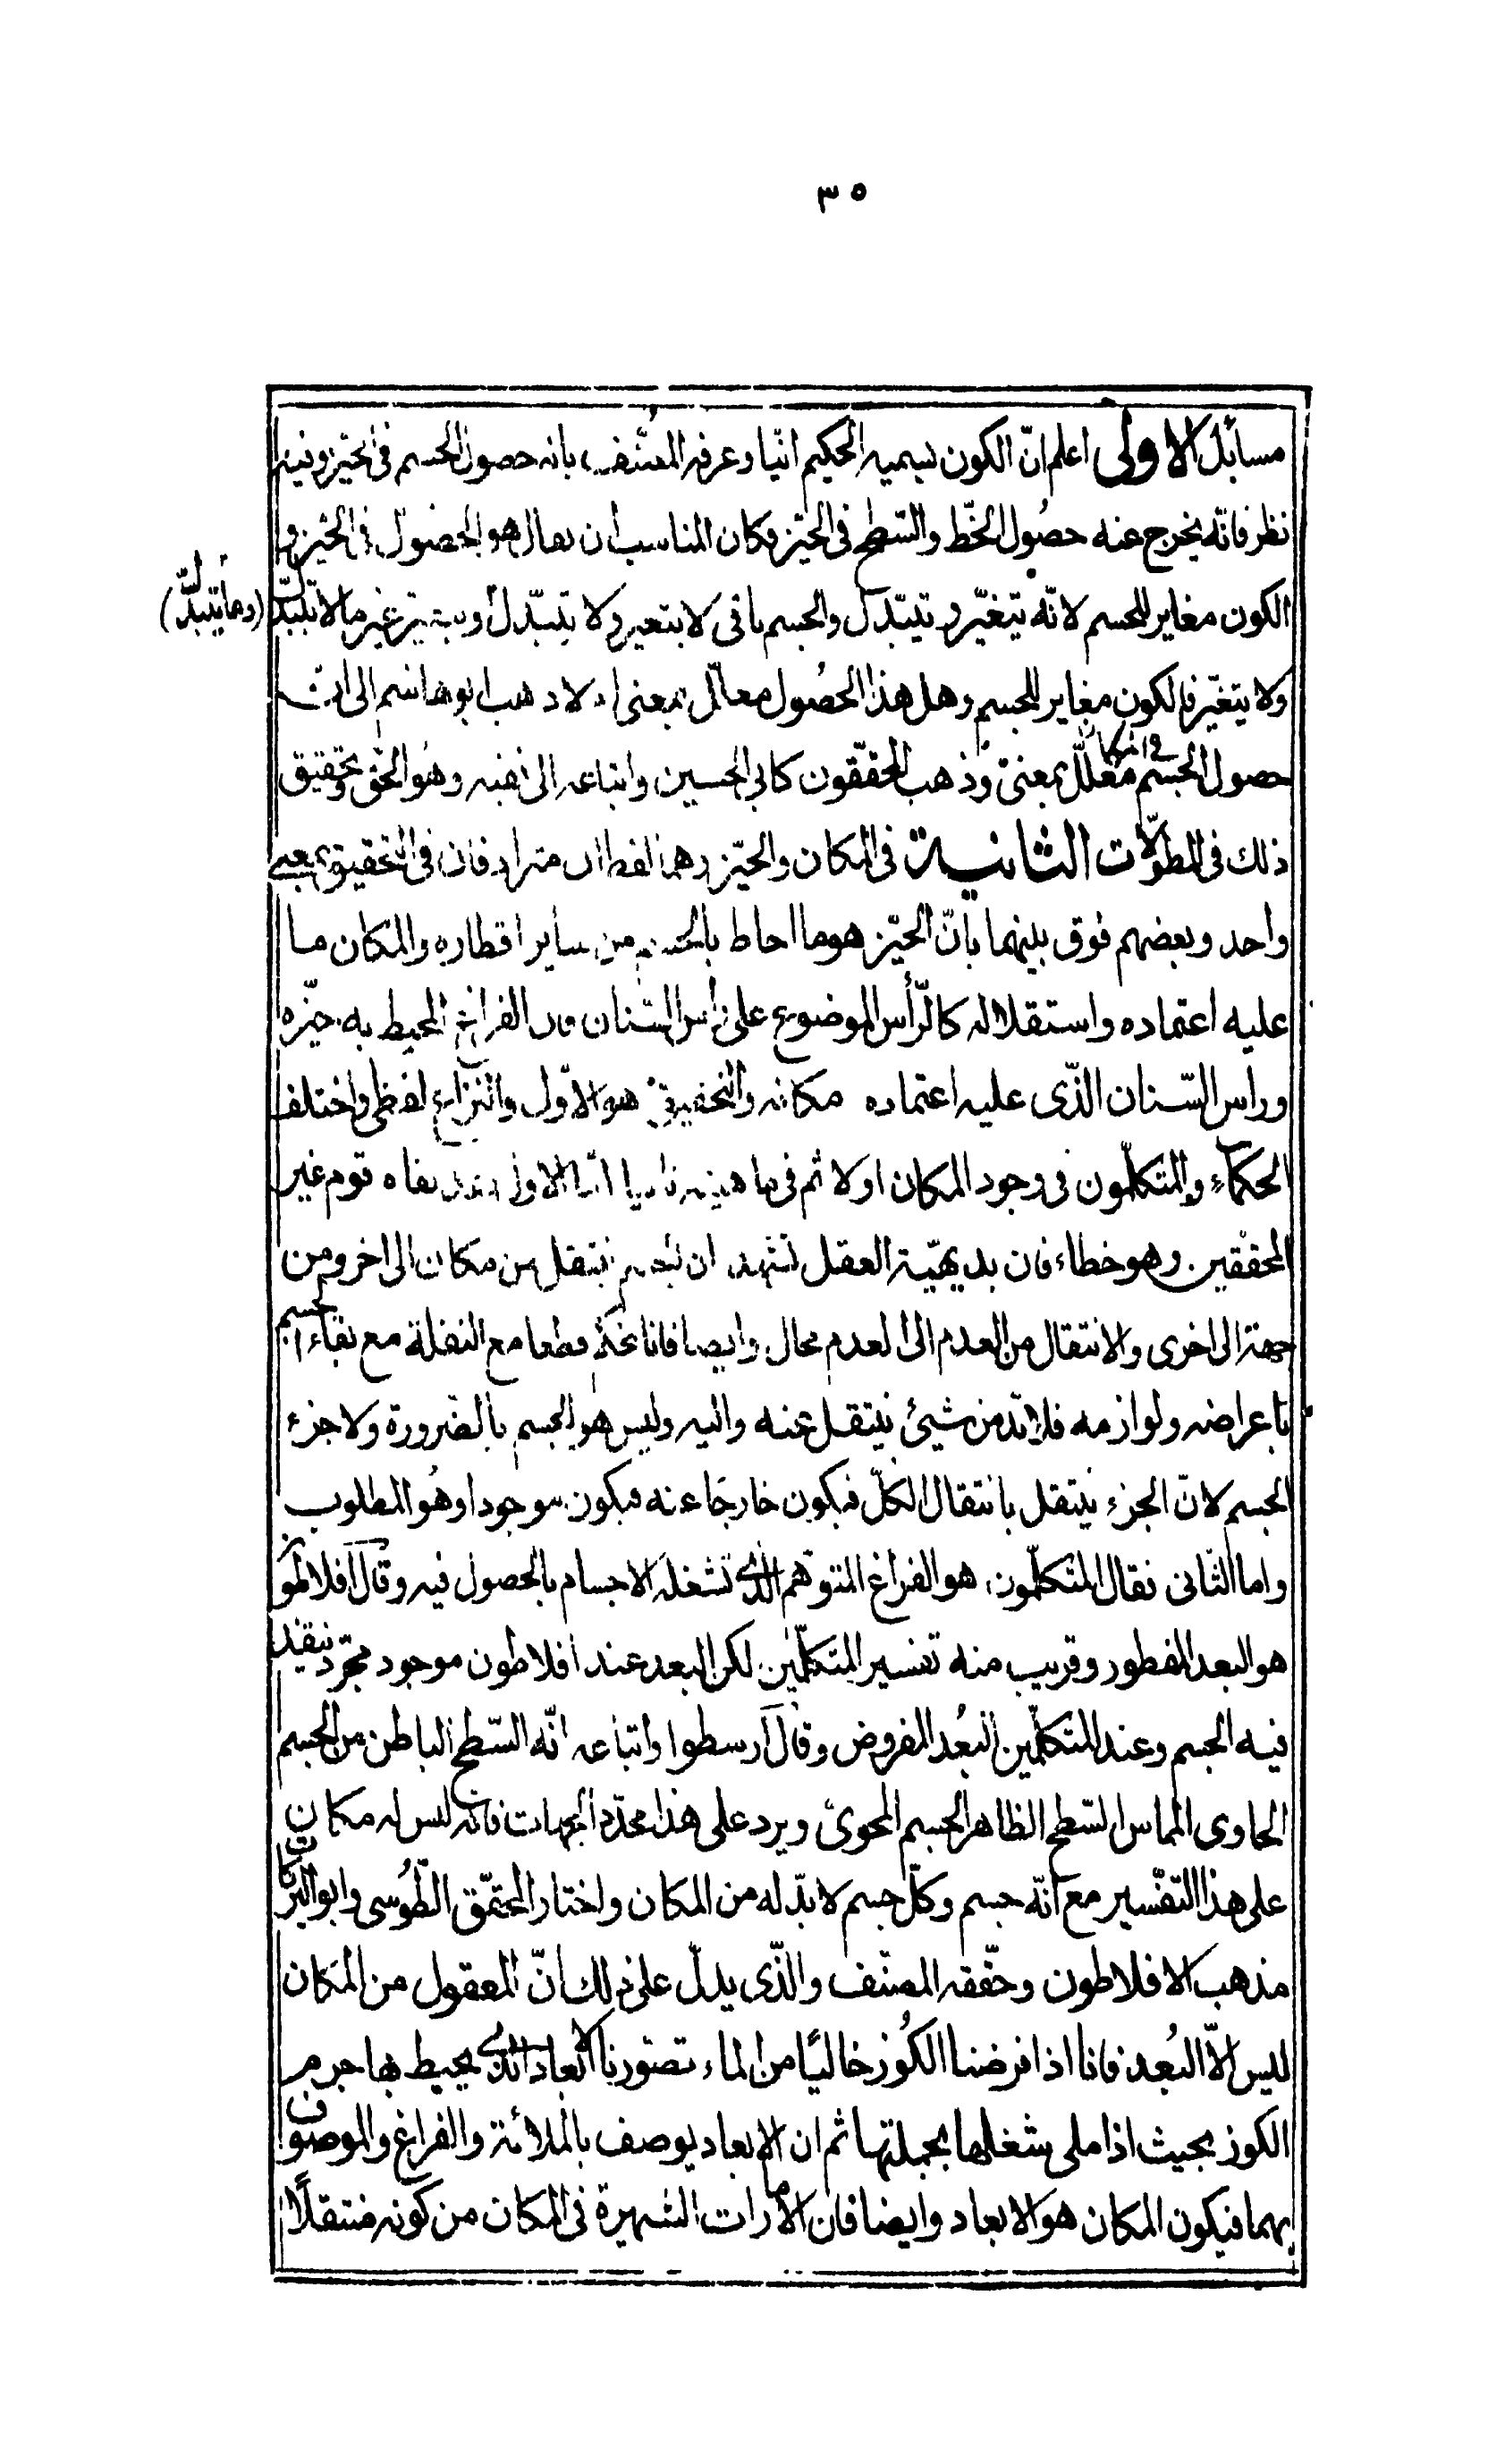 ٣٥
مسائل الاولى اعلم انّ الكون يسميه الحكيم اينا وعرفه المصنّف بانه حصول الجسم فى الحيّز وفيه
نظر فانّه يخرج عنه حصُول الخّط والسّطح فى الحيّز فكان المناسب ان يقال هو الحصول فى الحيّز و
الكون مغاير للجسم لانّه يتغيّر و يتبّدل والجسم باقى لا يتغير ولا يتبّدل و يتغير غير ما لا يتبدّل (وما يتبدّل)
ولا يتغيّر فالكون مغاير للجسم وهل هذا الحصُول معلّل بمعنى ام لا ذهب ابو هاشم الى ان
حصول الجسم فى المكان معلّل بمعنى وذهب المحقّقون كابى الحسين واتباعه الى نفيه وهُو الحقّ وتحقيق
ذلك فى المطوّلات الثانية فى المكان والحيّز وهما لفظان مترادفان فى التّحقيق بمعنى
واحد وبعضهم فرق بينهما بانّ الحيّز هو ما احاط بالجسم من ساير اقطاره والمكان ما
عليه اعتماده واستقلاله كالرّأس الموضوع على رأس السّنان فان الفراغ المحيط به حيّزه
وراس السّنان الذّى عليه اعتماده مكانه والتحقيق هو الاوّل والنزاع لفظى واختلف
الحكماء والمتكلّمون فى وجود المكان اولا ثم فى ماهيته ثانيا امّا الاول فقد نفاه قوم غير
المحقّقين وهو خطاء فان بديهيّة العقل تشهد ان الجسم ينتقل من مكان الى اخر ومن
جهة الى اخرى والانتقال من العدم الى العدم محال وايضا فانا نحكم قطعا مع النقلة مع بقاء الجسم
باعراضه ولوازمه فلابّد من شيئ ينتقل عنه واليه وليس هو الجسم بالضّرورة ولا جزء
الجسم لانّ الجزء ينتقل بانتقال الكلّ فيكون خارجًا عنه فيكون موجودا وهُو المطلوب
واما الثّانى فقال المتكلّمون هو الفراغ المتوّهم الّذى تشغله الاجسام بالحصول فيه وقال افلاطون
هو البعد المفطور وقريب منه تفسير المتكلّمين لكن البعد عند افلاطون موجود مجرّد ينفذ
فيه الجسم وعند المتكلّمين البُعد المفروض وقال ارسطوا واتباعه انّه السّطح الباطن من الجسم
الحاوى المماس للسّطح الظاهر الجسم المحوىّ ويرد على هذا محدّد الجهات فانّه ليس له مكان
على هذا التفّسير مع انّه جسم وكلّ جسم لا بدّ له من المكان واختار المحقّق الطّوسى وابو البركات
مذهب الافلاطون وحقّقه المصنّف والذّى يدلّ على ذلك انّ المعقول من المكان
ليس الاّ البُعد فانا اذا فرضنا الكُوز خاليًا من الماء تصّورنا الابعاد الّذى يحيط بها جرم
الكوز بحيث اذا ملى شغلها بجملتها ثم ان الابعاد يوصف بالملائة والفراغ والموصوف
بهما فيكون المكان هو الابعاد وايضا فان الامارات الشهيرة فى المكان من كونه منتقلًا